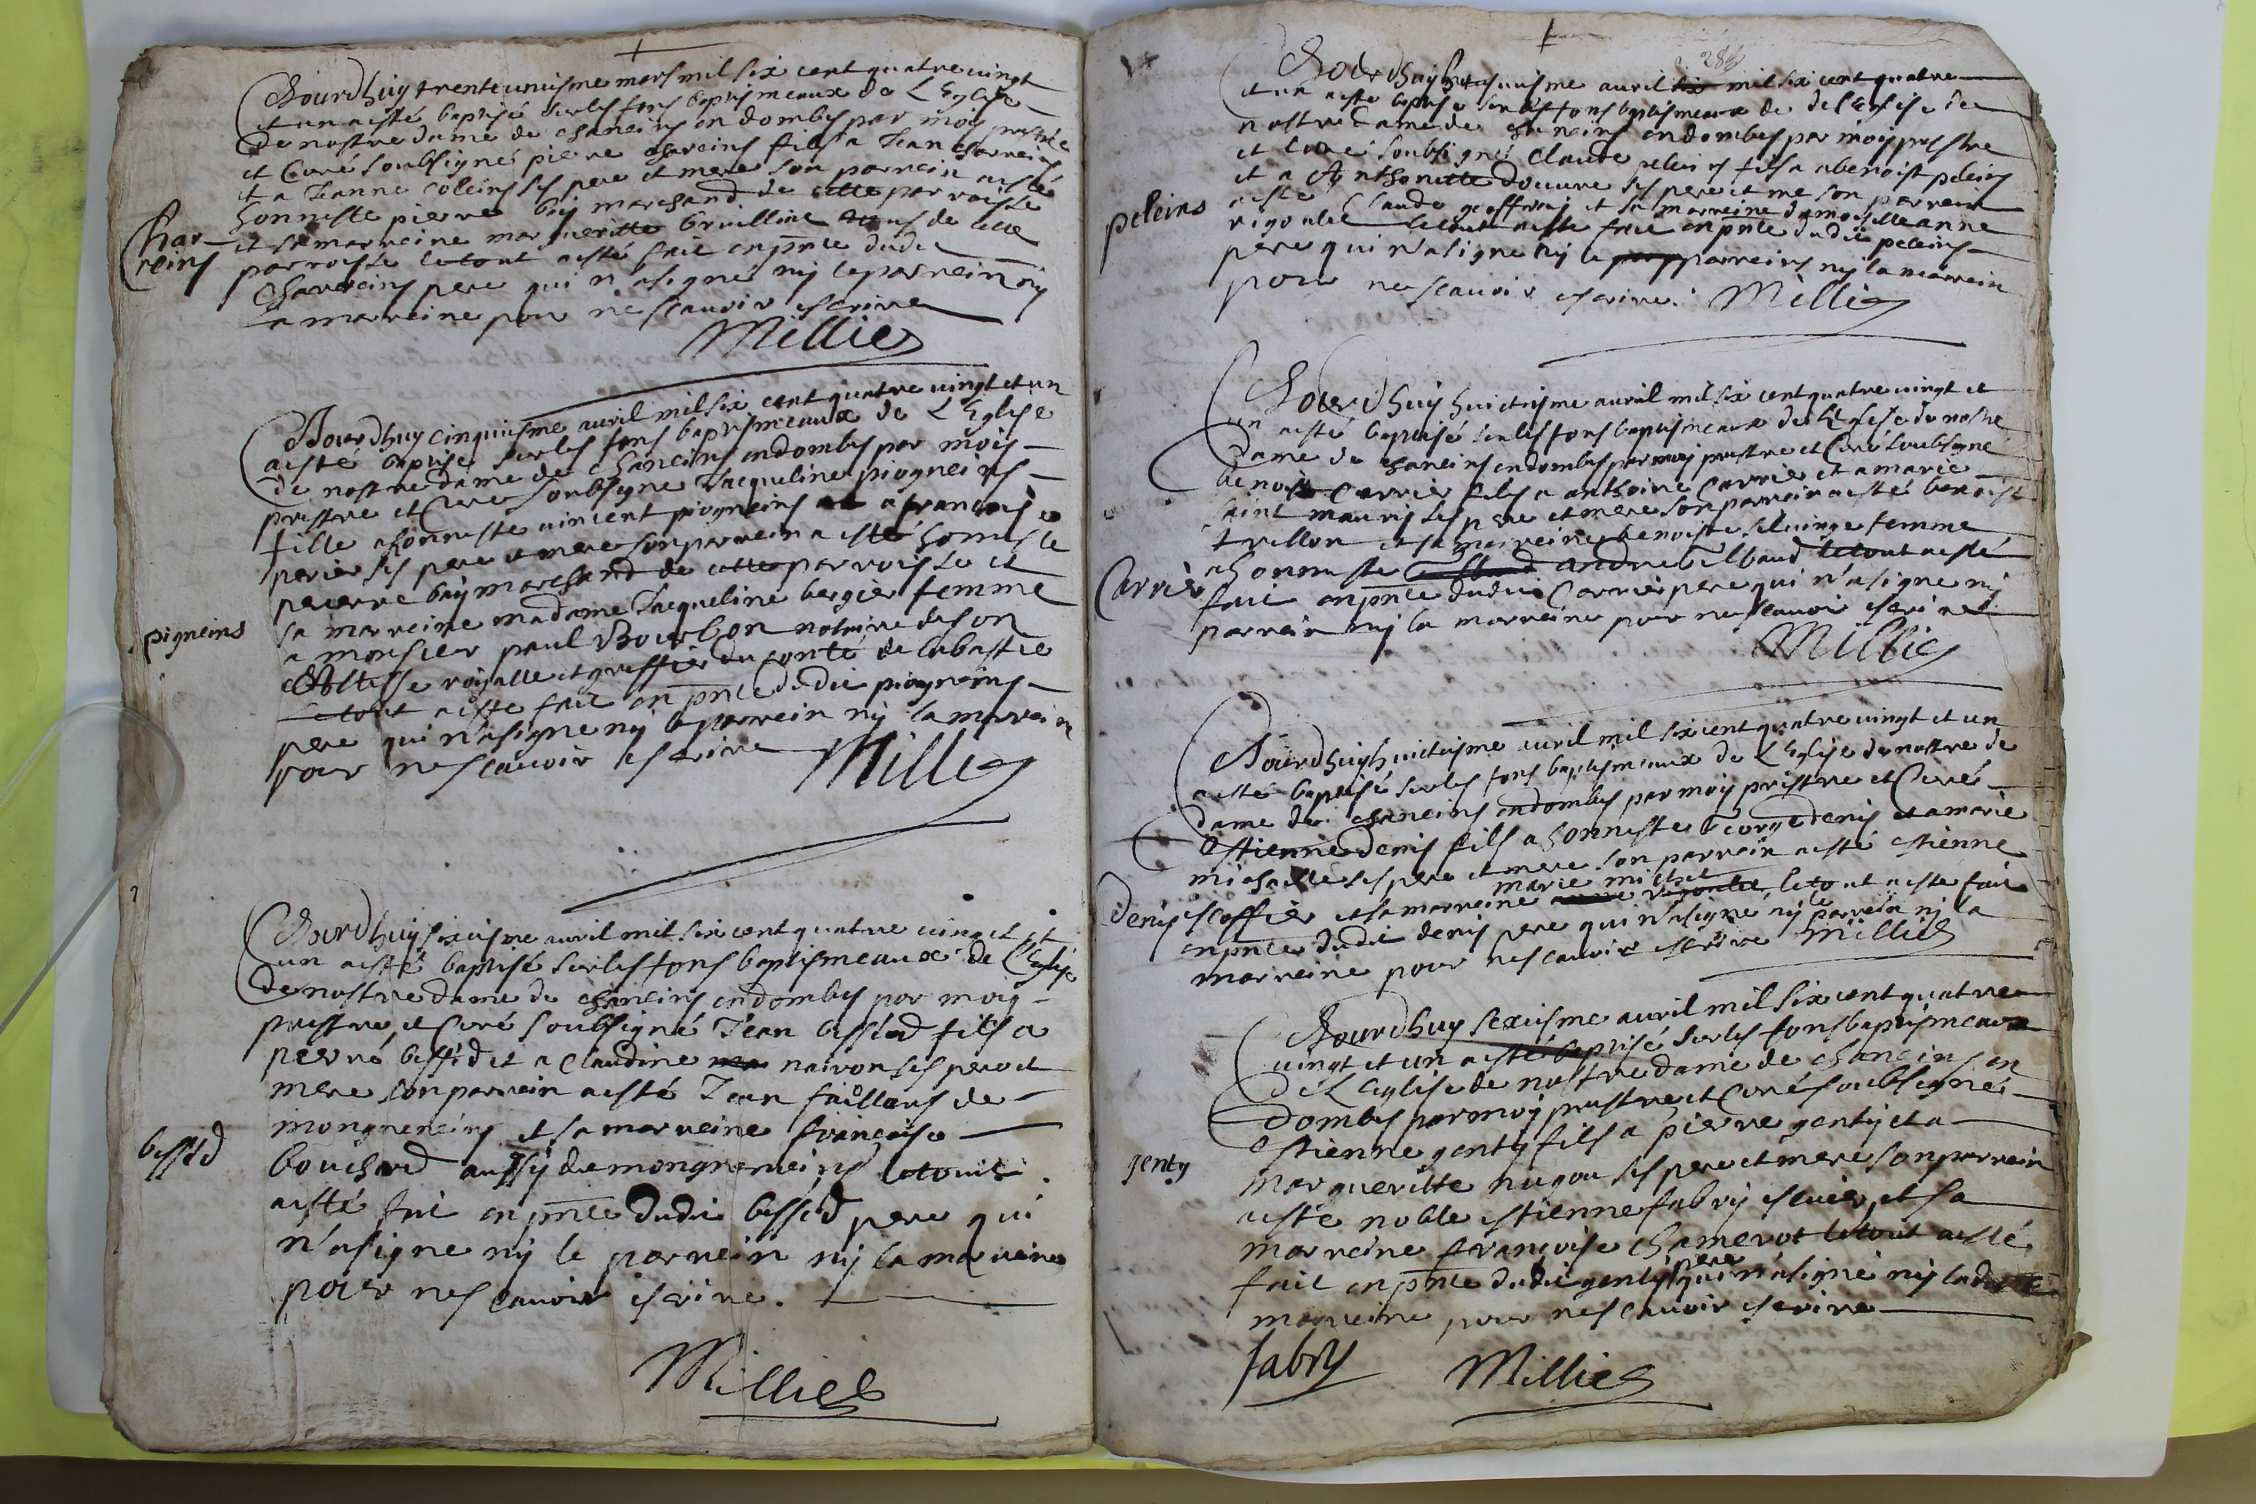 Aourdhuy trente unisme mars mil six cent quatre vingt
et un a esté baptisé sur les fons baptismeaux de L'Eglise
de nostre dame de chaneins en dombes par moy prestre
et Curé soubsigné pierre chareins fils a Jean charreins
et a Jeanne coleins ses pere et mere son parrein a esté
honneste pierre buy marchand de cette parroisse
et sa marreine margueritte bruilliat de cette
parroisse le tout a esté fait en pnce dudit
Charreins pere qui n'a signé ny le parrein ny
la marreine pour ne scauoir escrire
Millies
Char-
reins
Aourdhuy cinquisme auril mil six cent quatre vingt et un
a esté baptisé sur les fons baptismeaux de L'Eglise
de nostre dame de chaneins en dombes par mois
prestre et Curé soubsigne Jacqueline piogneins
fille a honneste vincent piogneins a francoise
perier ses pere et mere son parrein a esté honneste
peierre buy marchand de cette parroisse et
sa marreine madame Jacqueline bergier femme
a monsieur paul Bourbon notaire de son
Altesse royalle et greffier du conté de la bastie
le tout a esté fait en pnce dudit piogneins
pere qui n'a signe ny le parrein ny la marrein
pour ne scauoir escrire Millies
pigneins
Aourdhuy sixiesme auril mil six cent quatre vingt et
un a esté baptisé sur les fons baptismeaux de L'eglise
de nostre dame de chaneins en dombes par moy
prestre et Curé soubsigné Jean bessed fils a
pierre bessed et a Claudine nairon ses pere et
mere son parrein a esté Jean faillans de
mongneneins et sa marreine francoise
bouchard aussy de mongneneins le tout
a esté fait en pnce dudit bessed pere qui
n'a signe ny le parrein ny la marreine
pour ne scauoir escrire.
Millies
bessed
286
Aourdhuy auril mil six cent quatre
et un a esté baptisé sur les fons baptismeaux de de l'Eglise de
nostre dame de chaneins en dombes par moy prestre
et Curé soubsigné Claude peleins fils a benoist peleins
et a Anthonette douure ses pere et me son parrein
a esté Claude geoffray et sa marreine damoiselle anne
rigoulet le tout a esté fait en pnce dudit peleins
pere qui n'a signe ny le parreins ny la marrein
pour ne scauoir escrire. Millies
peleins
Aourdhuy huictisme auril mil six cent quatre vingt et
un a esté baptisé sur les fons baptismeaux de L'Eglise de nostre
dame de chaneins en dombes par moy prestre et Curé soubsigné
benoist Carrier fils a anthoine Carrier et a marie
saint mauris ses pere et mere son parrein a esté benoist
trillon et sa marreine benoiste femme
a honneste andre Ilbaud le tout a esté
fait en pnce dudit Carrier pere qui n'a signe ny
parrein ny la marreine pour ne scauoir escrire
Millies
Carrier
Aourdhuy huictisme auril mil six cent quatre vingt et un
a esté baptisé sur les fons baptismeaux de L'Eglise de nostre de
dame de chaneins en dombes par moy prestre et Curé
Estienne denis fils a honneste George denis et a marie
michaille ses pere et mere son parrein a esté estienne
marie michel
escoffier et sa marreine le tout a esté fait
en pnce dudit denis pere qui n'a signé ny le parrein ny la
marreine pour ne scauoir escrire Millies
denis
Aourdhuy sexiesme auril mil six cent quatre
vingt et un a esté baptisé sur les fons baptismeaux
de L'eglise de nostre dame de chaneins en
dombes par moy prestre et Curé soubsigné
estienne genty fils a pierre genty et a
margueritte nugou ses pere et mere son parrein
a esté noble estienne fabry escuier et sa
marreine francoise chamerot le tout a esté
pere
fait en pnce dudit genty qui n'a signé ny ladite
marreine pour ne scauoir escrire
fabry Millies
genty